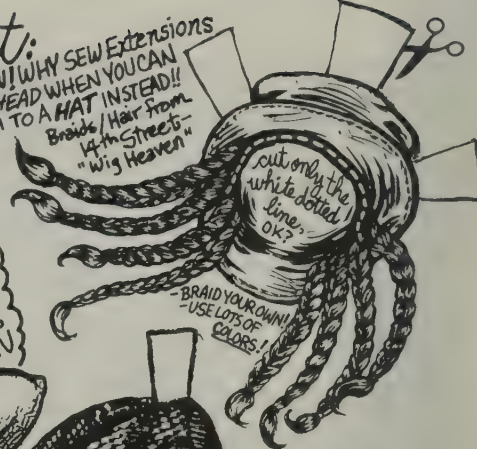 t:
! WHY SEW Extensions
HEAD WHEN YOU CAN
TO A HAT INSTEAD!!
Braids / Hair from
14th Street-
"Wig Heaven"
cut only the
white dotted
line,
OK?
-BRAID YOUR OWN!
-USE LOTS OF
COLORS!